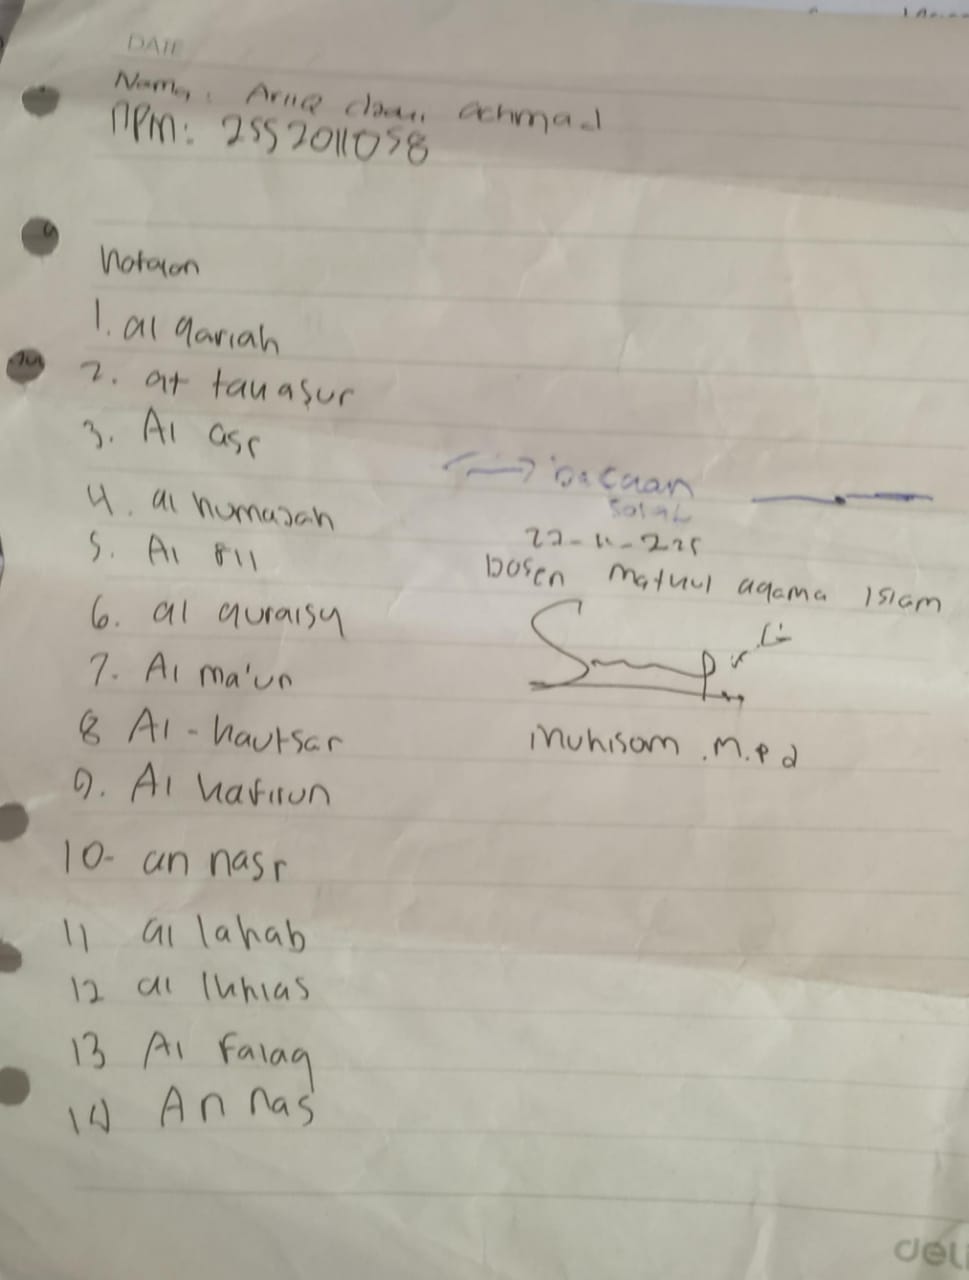 DATE
Nama: Ariiq daani achmad
NPM: 2552011058
hotaian
1. al qariah
2. at tau asur
3. Al asr
4. al humazah
5. Al fil
6. al quraisy
7. Al ma'un
8 Al-kautsar
9. Al kafirun
10- an nasr
11 al lahab
12 al Ikhlas
13 Al Falaq
14 An nas
bacaan
Solat
Dosen matkul agama islam
Muhisom .M.Pd
deli